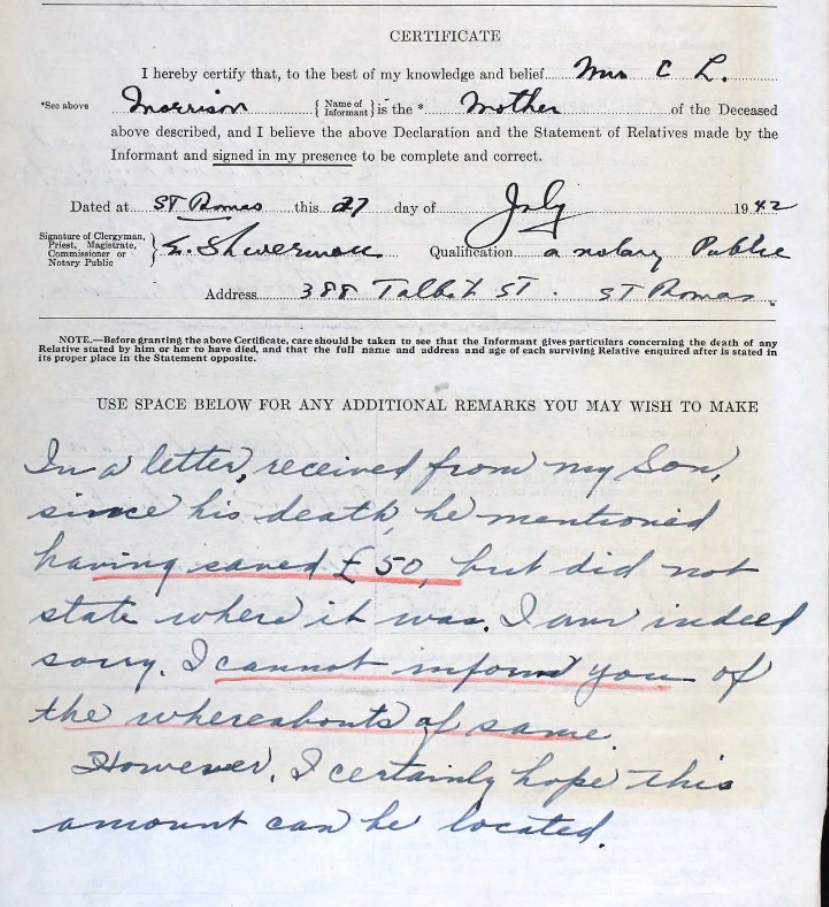 CERTIFICATE
I hereby certify that, to the best of my knowledge and belief Mrs C L.
*See above Morrison { Name of Informant } is the * Mother of the Deceased
above described, and I believe the above Declaration and the Statement of Relatives made by the
Informant and signed in my presence to be complete and correct.
Dated at ST Thomas this 27 day of July 1942
Signature of Clergyman,
Priest, Magistrate,
Commissioner or
Notary Public
Qualification a notary Public
Address 388 Talbot ST. ST Thomas.
NOTE.—Before granting the above Certificate, care should be taken to see that the Informant gives particulars concerning the death of any
Relative stated by him or her to have died, and that the full name and address and age of each surviving Relative enquired after is stated in
its proper place in the Statement opposite.
USE SPACE BELOW FOR ANY ADDITIONAL REMARKS YOU MAY WISH TO MAKE
In a letter, received from my Son,
since his death, he mentioned
having saved £50, but did not
state where it was. I am indeed
sorry. I cannot inform you of
the whereabouts of same.
However, I certainly hope this
amount can be located.